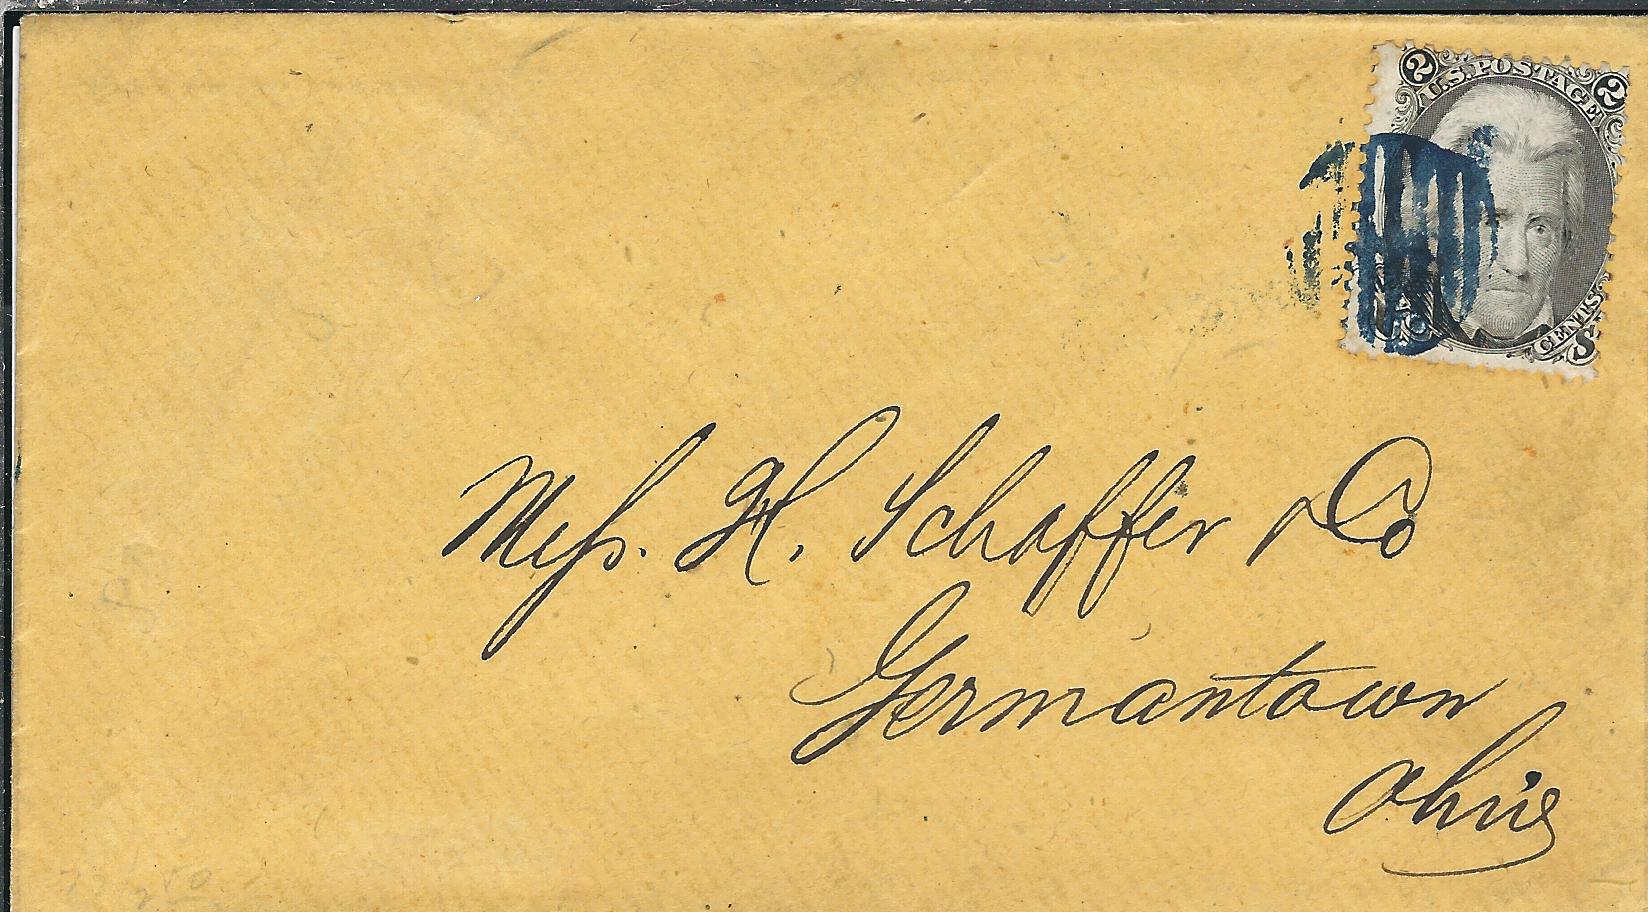 2 U.S. POSTAGE 2
CENTS
Mess. H. Schaffer & Co
Germantown
Ohio